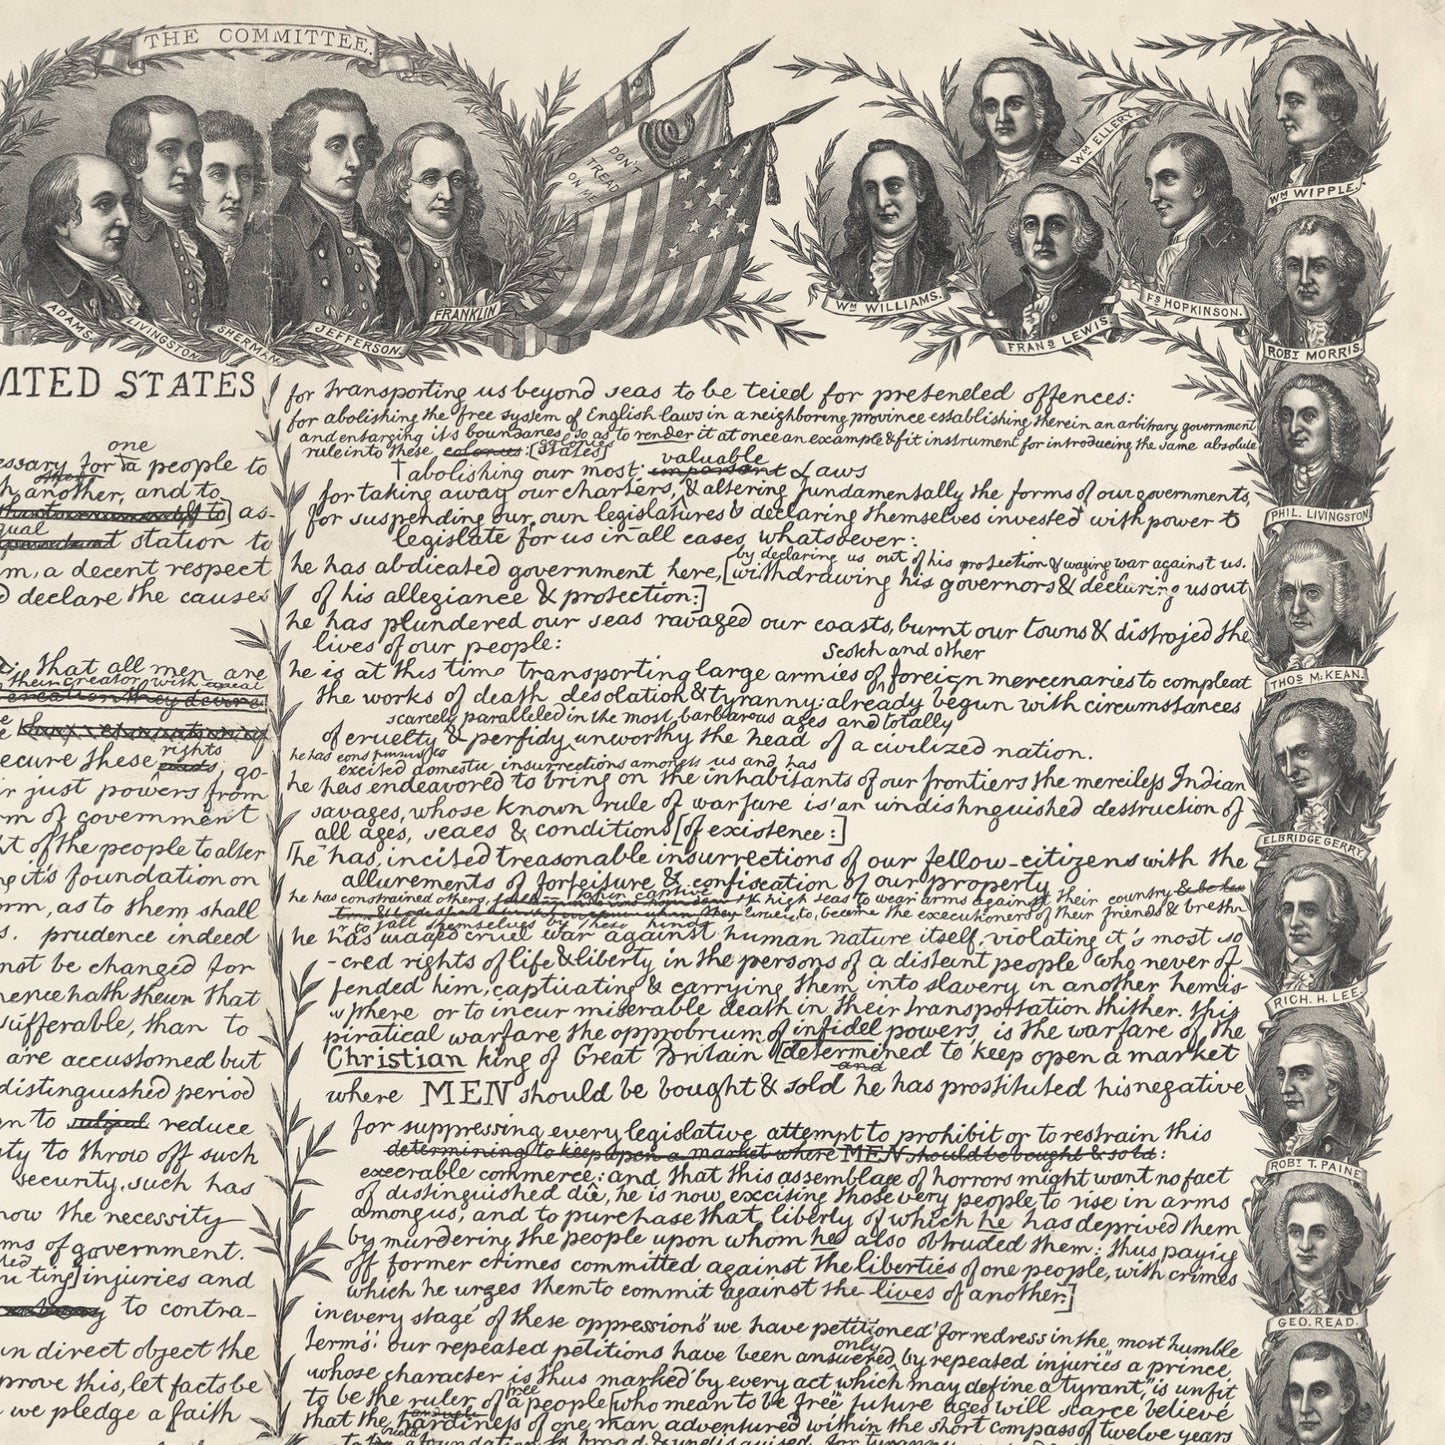 THE COMMITTEE.
ADAMS.
LIVINGSTON.
SHERMAN.
JEFFERSON.
FRANKLIN
DON'T
TREAD
ON ME
WM WILLIAMS.
WM ELLERY.
FRANS LEWIS.
FS HOPKINSON.
WM WIPPLE.
ROBT MORRIS.
PHIL. LIVINGSTON
THOS McKEAN.
ELBRIDGE GERRY.
RICH. H. LEE.
ROBT T. PAINE
GEO. READ.
NITED STATES
one
essary for a people to
h another, and to
to] as-
qual
station to
m, a decent respect
d declare the causes
that all men are
their creator with
rights
ecure these ends, go-
r just powers from
rm of government
ht of the people to alter
ng it's foundation on
orm, as to them shall
s. prudence indeed
not be changed for
rience hath shewn that
sufferable, than to
are accustomed but
distinguished period
n to subject reduce
ty to throw off such
security, such has
now the necessity
ms of government.
injuries and
to contra-
n direct object the
prove this, let facts be
we pledge a faith
for transporting us beyond seas to be teied for pretended offences:
for abolishing the free system of English laws in a neighboring province establishing therein an arbitrary government
and enlarging it's boundaries so as to render it at once an example & fit instrument for introducing the same absolute
colonies
rule into these [states]
valuable
abolishing our most important Laws
for taking away our charters, & altering fundamentally the forms of our governments,
for suspending our own legislatures & declaring themselves invested with power to
legislate for us in all cases whatsoever:
by declaring us out of his protection & waging war against us.
he has abdicated government here, [withdrawing his governors & declaring us out
of his allegiance & protection:]
he has plundered our seas ravaged our coasts, burnt our towns & distrojed the
lives of our people:
Scotch and other
he is at this time transporting large armies of foreign mercenaries to compleat
the works of death desolation & tyranny: already begun with circumstances
scarcely paralleled in the most barbarous ages and totally
of cruelty & perfidy unworthy the head of a civilized nation.
excited domestic insurrections amongst us and has
he has endeavored to bring on the inhabitants of our frontiers the merciless Indian
savages, whose known rule of warfare is an undistinguished destruction of
all ages, sexes & conditions [of existence:]
[he has incited treasonable insurrections of our fellow-citizens with the
allurements of forfeiture & confiscation of our property
he has constrained others, high seas to wear arms against their country
to become the executioners of their friends & brethn
r to fall themselves by these hands
he has waged cruel war against human nature itself, violating it's most sa
-cred rights of life & liberty in the persons of a distant people who never of
fended him, captivating & carrying them into slavery in another hemis-
w phere or to incur miserable death in their transportation thither. this
piratical warfare the opprobrium of infidel powers, is the warfare of the
Christian king of Great Britain [determined to keep open a market
and
where MEN should be bought & sold he has prostituted his negative
for suppressing every legislative attempt to prohibit or to restrain this
determining to keep open a market where MEN should be bought & sold:
execrable commerce: and that this assemblage of horrors might want no fact
of distinguished die, he is now exciting those very people to rise in arms
among us, and to purchase that liberty of which he has deprived them
by murdering the people upon whom he also obtruded them: thus paying
off former crimes committed against the liberties of one people, with crimes
which he urges them to commit against the lives of another.]
in every stage of these oppressions we have petitioned for redress in the most humble
only
terms: our repeated petitions have been answered by repeated injuries a prince,
whose character is thus marked by every act which may define a tyrant, is unfit
free
to be the ruler of a people [who mean to be free future ages will scarce believe
that the hardiness of one man adventured within the short compass of twelve years
a foundation so broad & undisguised, for tyranny